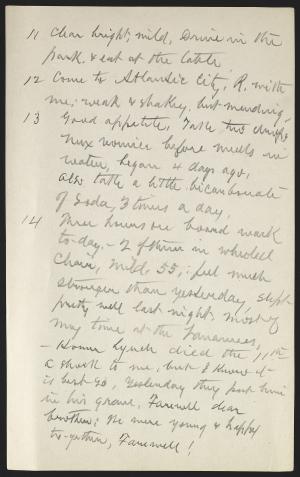 11 Clear bright, mild, Drive in the
park, & eat at the table
12 Come to Atlantic City, R. with
me; weak & shakey, but mending,
13 Good appetite, Take two drops
Nux vomica before meals in
water, began 4 days ago,
also take a little bicarbonate
of Soda, 3 times a day,
14 Three hours on board walk
to-day, - 2 of them in wheeled
Chair, Mild, 55; feel much
stronger than yesterday, slept
pretty well last night, most of
my time at the
- Homer Lynch died the 11th
a shock to me, but I know it
is best so, Yesterday they put him
in his grave, Farewell dear
brother; We were young & happy
to-gether, Farewell!